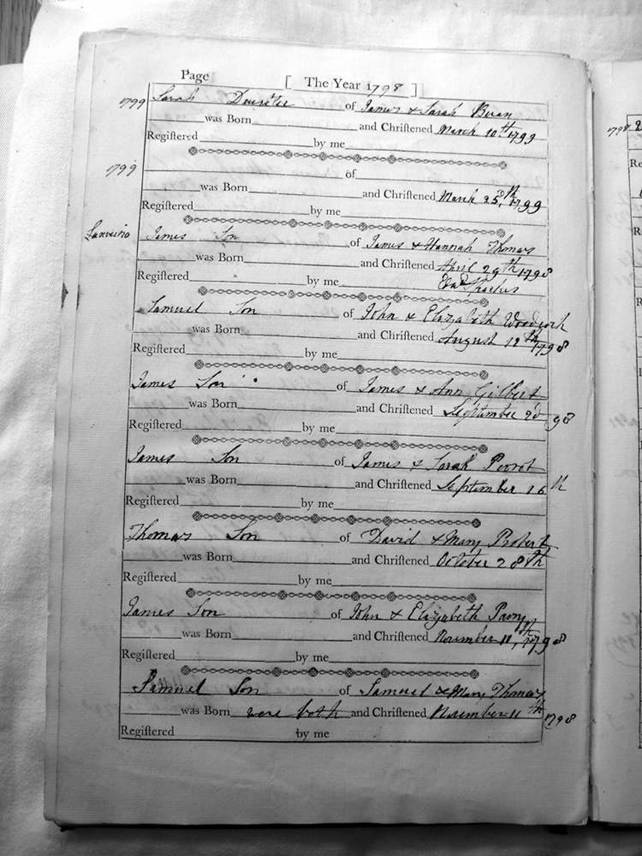 Page [ The Year 1798 ]
1799 Sarah of James & Sarah Bevan
was Born and Chriſtened March 10th 1799
Regiſtered by me
1799 of
was Born and Chriſtened March 25th, 1799
Regiſtered by me
James Son of James & Hannah Thomas
was Born and Chriſtened April 29th 1798
Regiſtered by me
Samuel Son of John & Elizabeth Woodcock
was Born and Chriſtened August 12th 1798
Regiſtered by me
James Son of James & Ann Gilbert
was Born and Chriſtened September 2d 98
Regiſtered by me
James Son of James & Sarah
was Born and Chriſtened September 16th
Regiſtered by me
Thomas Son of David & Mary Probert
was Born and Chriſtened October 28th
Regiſtered by me
James Son of John & Elizabeth Parry
was Born and Chriſtened November 11th, 1798
Regiſtered by me
Samuel Son of Samuel & Mary Thomas
was Born were both and Chriſtened November 11th 1798
Regiſtered by me